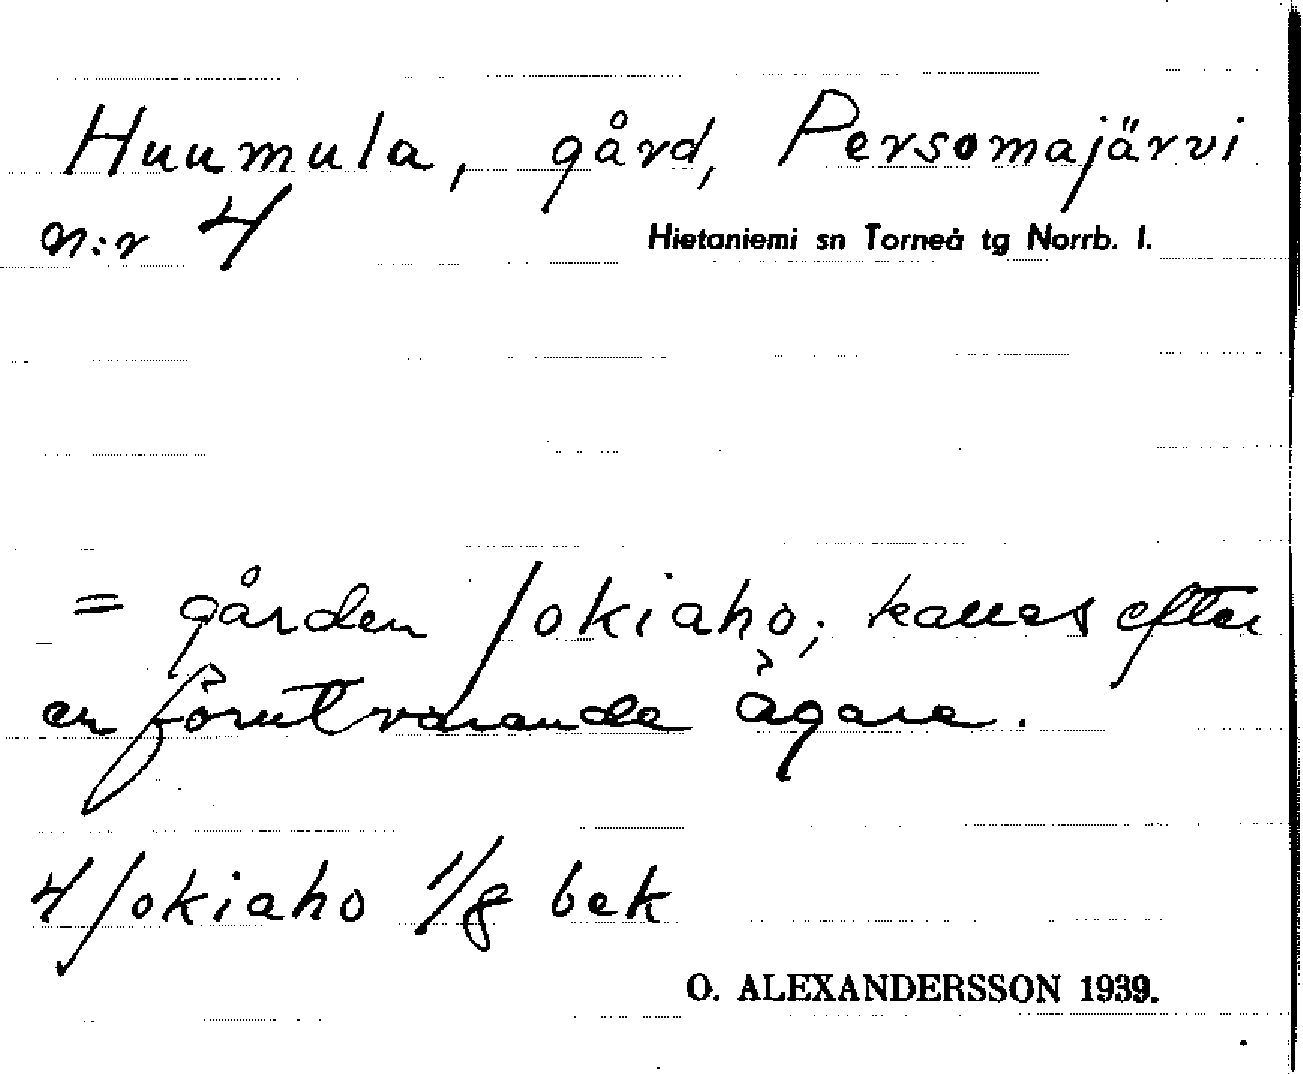 Huumula, gård, Persomajärvi
n:r 4
Hietaniemi sn Torneå tg Norrb. l.
= gården Jokiaho; kallas efter
en förutvarande ägare.
4 Jokiaho 1/8 bek
O. ALEXANDERSSON 1939.